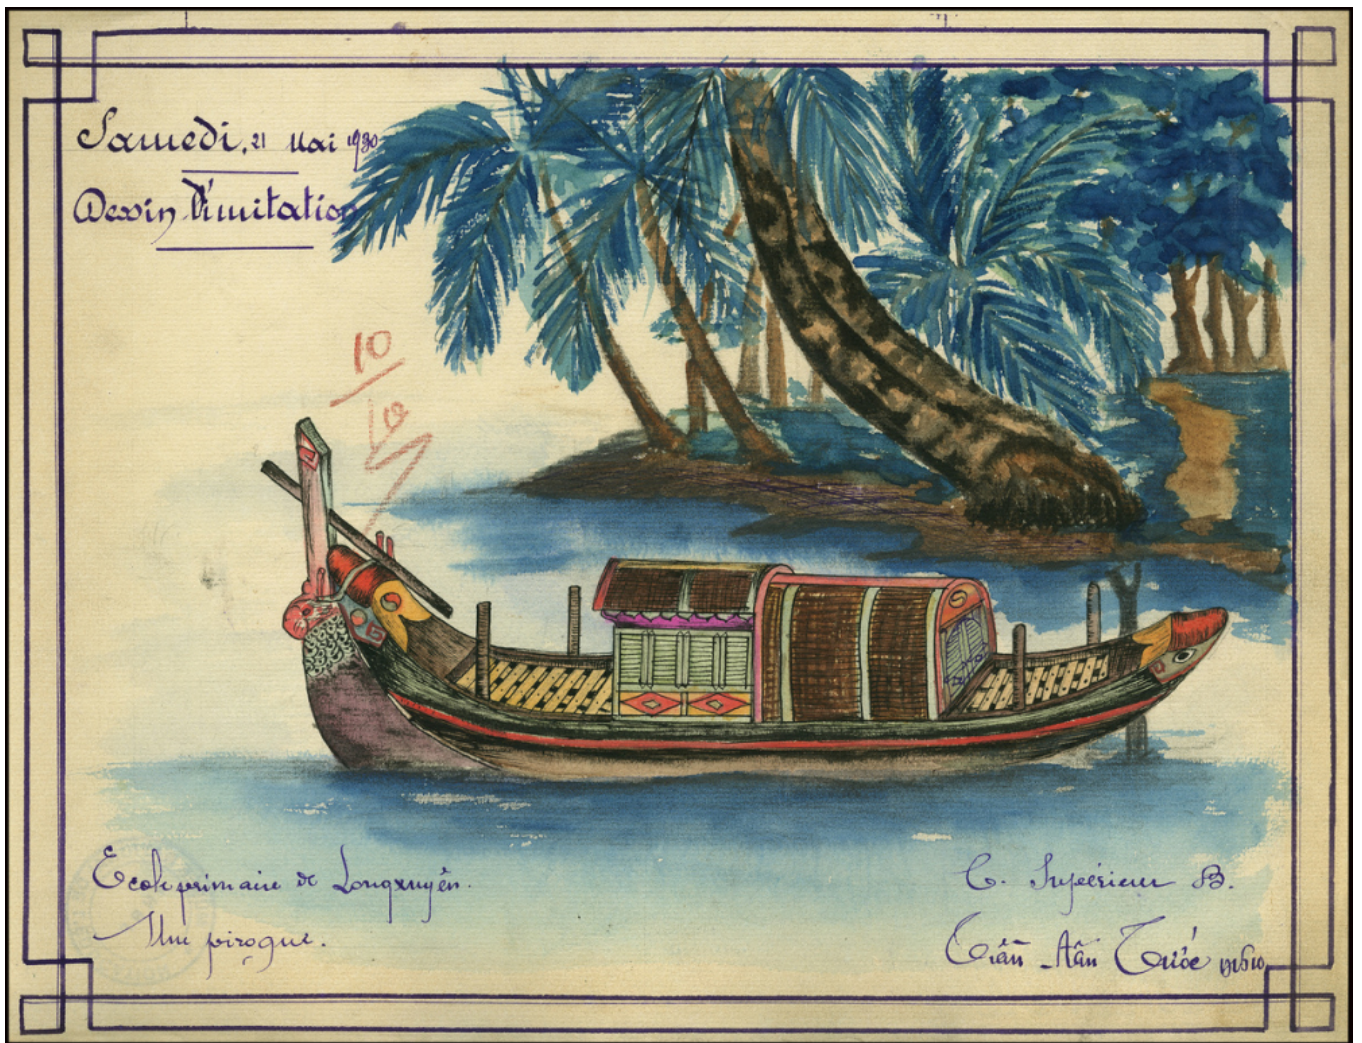 Samedi, 21 Mai 1930
Dessin d'imitation
10
10
Ecole primaire de Longxuyên.
Une pirogue.
C. Supérieur B.
Trần